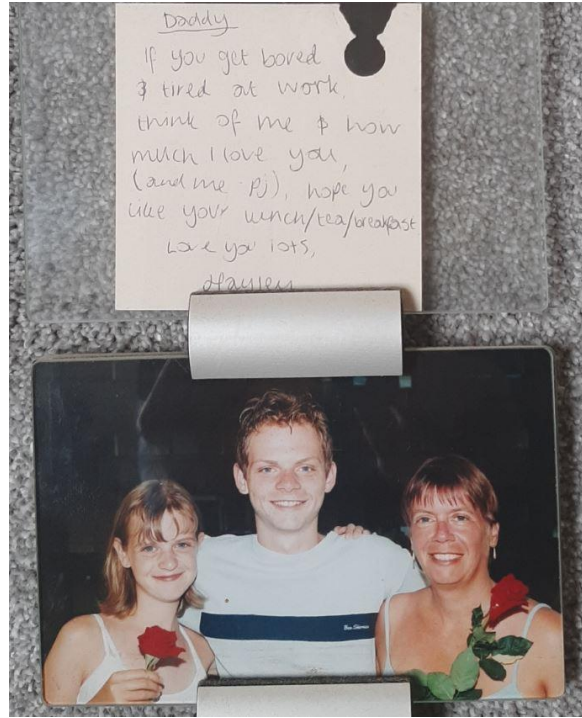 Daddy
If you get bored
& tired at work,
think of me & how
much I love you,
(and me pj), hope you
like your lunch/tea/breakfast
Love you lots,
Hayley